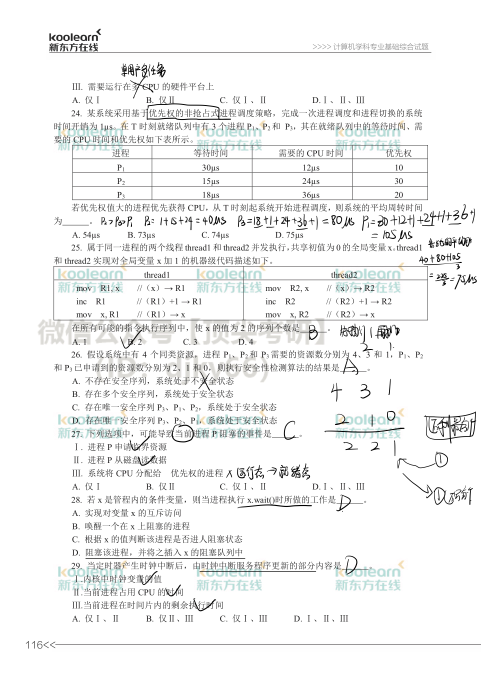 koolearn
新东方在线
>>>> 计算机学科专业基础综合试题
单用户多任务
Ⅲ. 需要运行在多 CPU 的硬件平台上
A. 仅Ⅰ B. 仅Ⅱ C. 仅Ⅰ、Ⅱ D.Ⅰ、Ⅱ、Ⅲ
24. 某系统采用基于优先权的非抢占式进程调度策略，完成一次进程调度和进程切换的系统
时间开销为 1μs。在 T 时刻就绪队列中有 3 个进程 P₁、P₂ 和 P₃，其在就绪队列中的等待时间、需
要的 CPU 时间和优先权如下表所示。
进程 等待时间 需要的 CPU 时间 优先权
P₁ 30μs 12μs 10
P₂ 15μs 24μs 30
P₃ 18μs 36μs 20
若优先权值大的进程优先获得 CPU，从 T 时刻起系统开始进程调度，则系统的平均周转时间
为 。 P₂>P₃>P₁ P₂=1+15+24=40μs P₃=18+1+24+36+1=80μs P₁=30+12+1+24+1+36+1
=105μs
A. 54μs B. 73μs C. 74μs D. 75μs
40+80+105
3
=75μs
25. 属于同一进程的两个线程 thread1 和 thread2 并发执行，共享初值为 0 的全局变量 x。thread1
和 thread2 实现对全局变量 x 加 1 的机器级代码描述如下。
thread1 thread2
mov R1, x //（x）→ R1 mov R2, x //（x）→ R2
inc R1 //（R1）+1 → R1 inc R2 //（R2）+1 → R2
mov x, R1 //（R1）→ x mov x, R2 //（R2）→ x
在所有可能的指令执行序列中，使 x 的值为 2 的序列个数是 B 。
A. 1 B. 2 C. 3 D. 4
26. 假设系统中有 4 个同类资源，进程 P₁、P₂ 和 P₃ 需要的资源数分别为 4、3 和 1，P₁、P₂
和 P₃ 已申请到的资源数分别为 2、1 和 0，则执行安全性检测算法的结果是 A 。
A. 不存在安全序列，系统处于不安全状态
B. 存在多个安全序列，系统处于安全状态
C. 存在唯一安全序列 P₃、P₁、P₂，系统处于安全状态
D. 存在唯一安全序列 P₃、P₂、P₁，系统处于安全状态
4 3 1
2 1 0
2 2 1
①
27. 下列选项中，可能导致当前进程 P 阻塞的事件是 C 。
Ⅰ. 进程 P 申请临界资源
Ⅱ. 进程 P 从磁盘读数据
Ⅲ. 系统将 CPU 分配给 优先权的进程 × 运行态→就绪态
A. 仅Ⅰ B. 仅Ⅱ C. 仅Ⅰ、Ⅱ D.Ⅰ、Ⅱ、Ⅲ
28. 若 x 是管程内的条件变量，则当进程执行 x.wait()时所做的工作是 D 。
A. 实现对变量 x 的互斥访问
B. 唤醒一个在 x 上阻塞的进程
C. 根据 x 的值判断该进程是否进人阻塞状态
D. 阻塞该进程，并将之插入 x 的阻塞队列中
29. 当定时器产生时钟中断后，由时钟中断服务程序更新的部分内容是 D 。
Ⅰ.内核中时钟变量的值
Ⅱ.当前进程占用 CPU 的时间
Ⅲ.当前进程在时间片内的剩余执行时间
A. 仅Ⅰ、Ⅱ B. 仅Ⅱ、Ⅲ C. 仅Ⅰ、Ⅲ D. Ⅰ、Ⅱ、Ⅲ
116<<